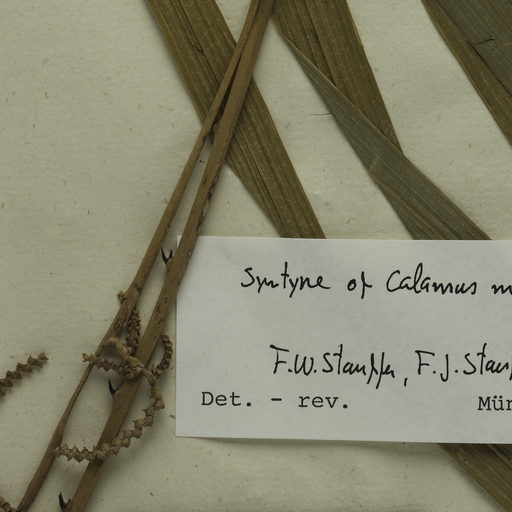 Syntype of Calamus m
F.W. Stauffer, F.J. Stauf
Det. - rev. Mün